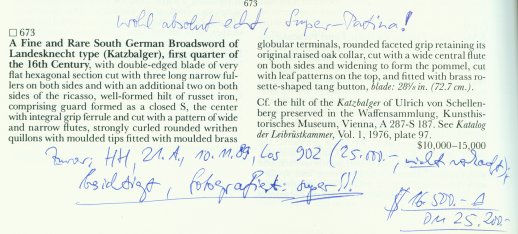 673
wohl absolut echt, Super-Patina!
□ 673
A Fine and Rare South German Broadsword of
Landesknecht type (Katzbalger), first quarter of
the 16th Century, with double-edged blade of very
flat hexagonal section cut with three long narrow ful-
lers on both sides and with an additional two on both
sides of the ricasso, well-formed hilt of russet iron,
comprising guard formed as a closed S, the center
with integral grip ferrule and cut with a pattern of wide
and narrow flutes, strongly curled rounded writhen
quillons with moulded tips fitted with moulded brass
globular terminals, rounded faceted grip retaining its
original raised oak collar, cut with a wide central flute
on both sides and widening to form the pommel, cut
with leaf patterns on the top, and fitted with brass ro-
sette-shaped tang button, blade: 28⅝ in. (72.7 cm.).
Cf. the hilt of the Katzbalger of Ulrich von Schellen-
berg preserved in the Waffensammlung, Kunsthis-
torisches Museum, Vienna, A 287-S 187. See Katalog
der Leibrüstkammer, Vol. 1, 1976, plate 97.
$10,000–15,000
Zuvor, HH, 21. A, 10.11.89, Los 902 (25.000.-, nicht verkauft);
besichtigt, fotografiert: super!!!
$ 16 500.- A
DM 25.200.-